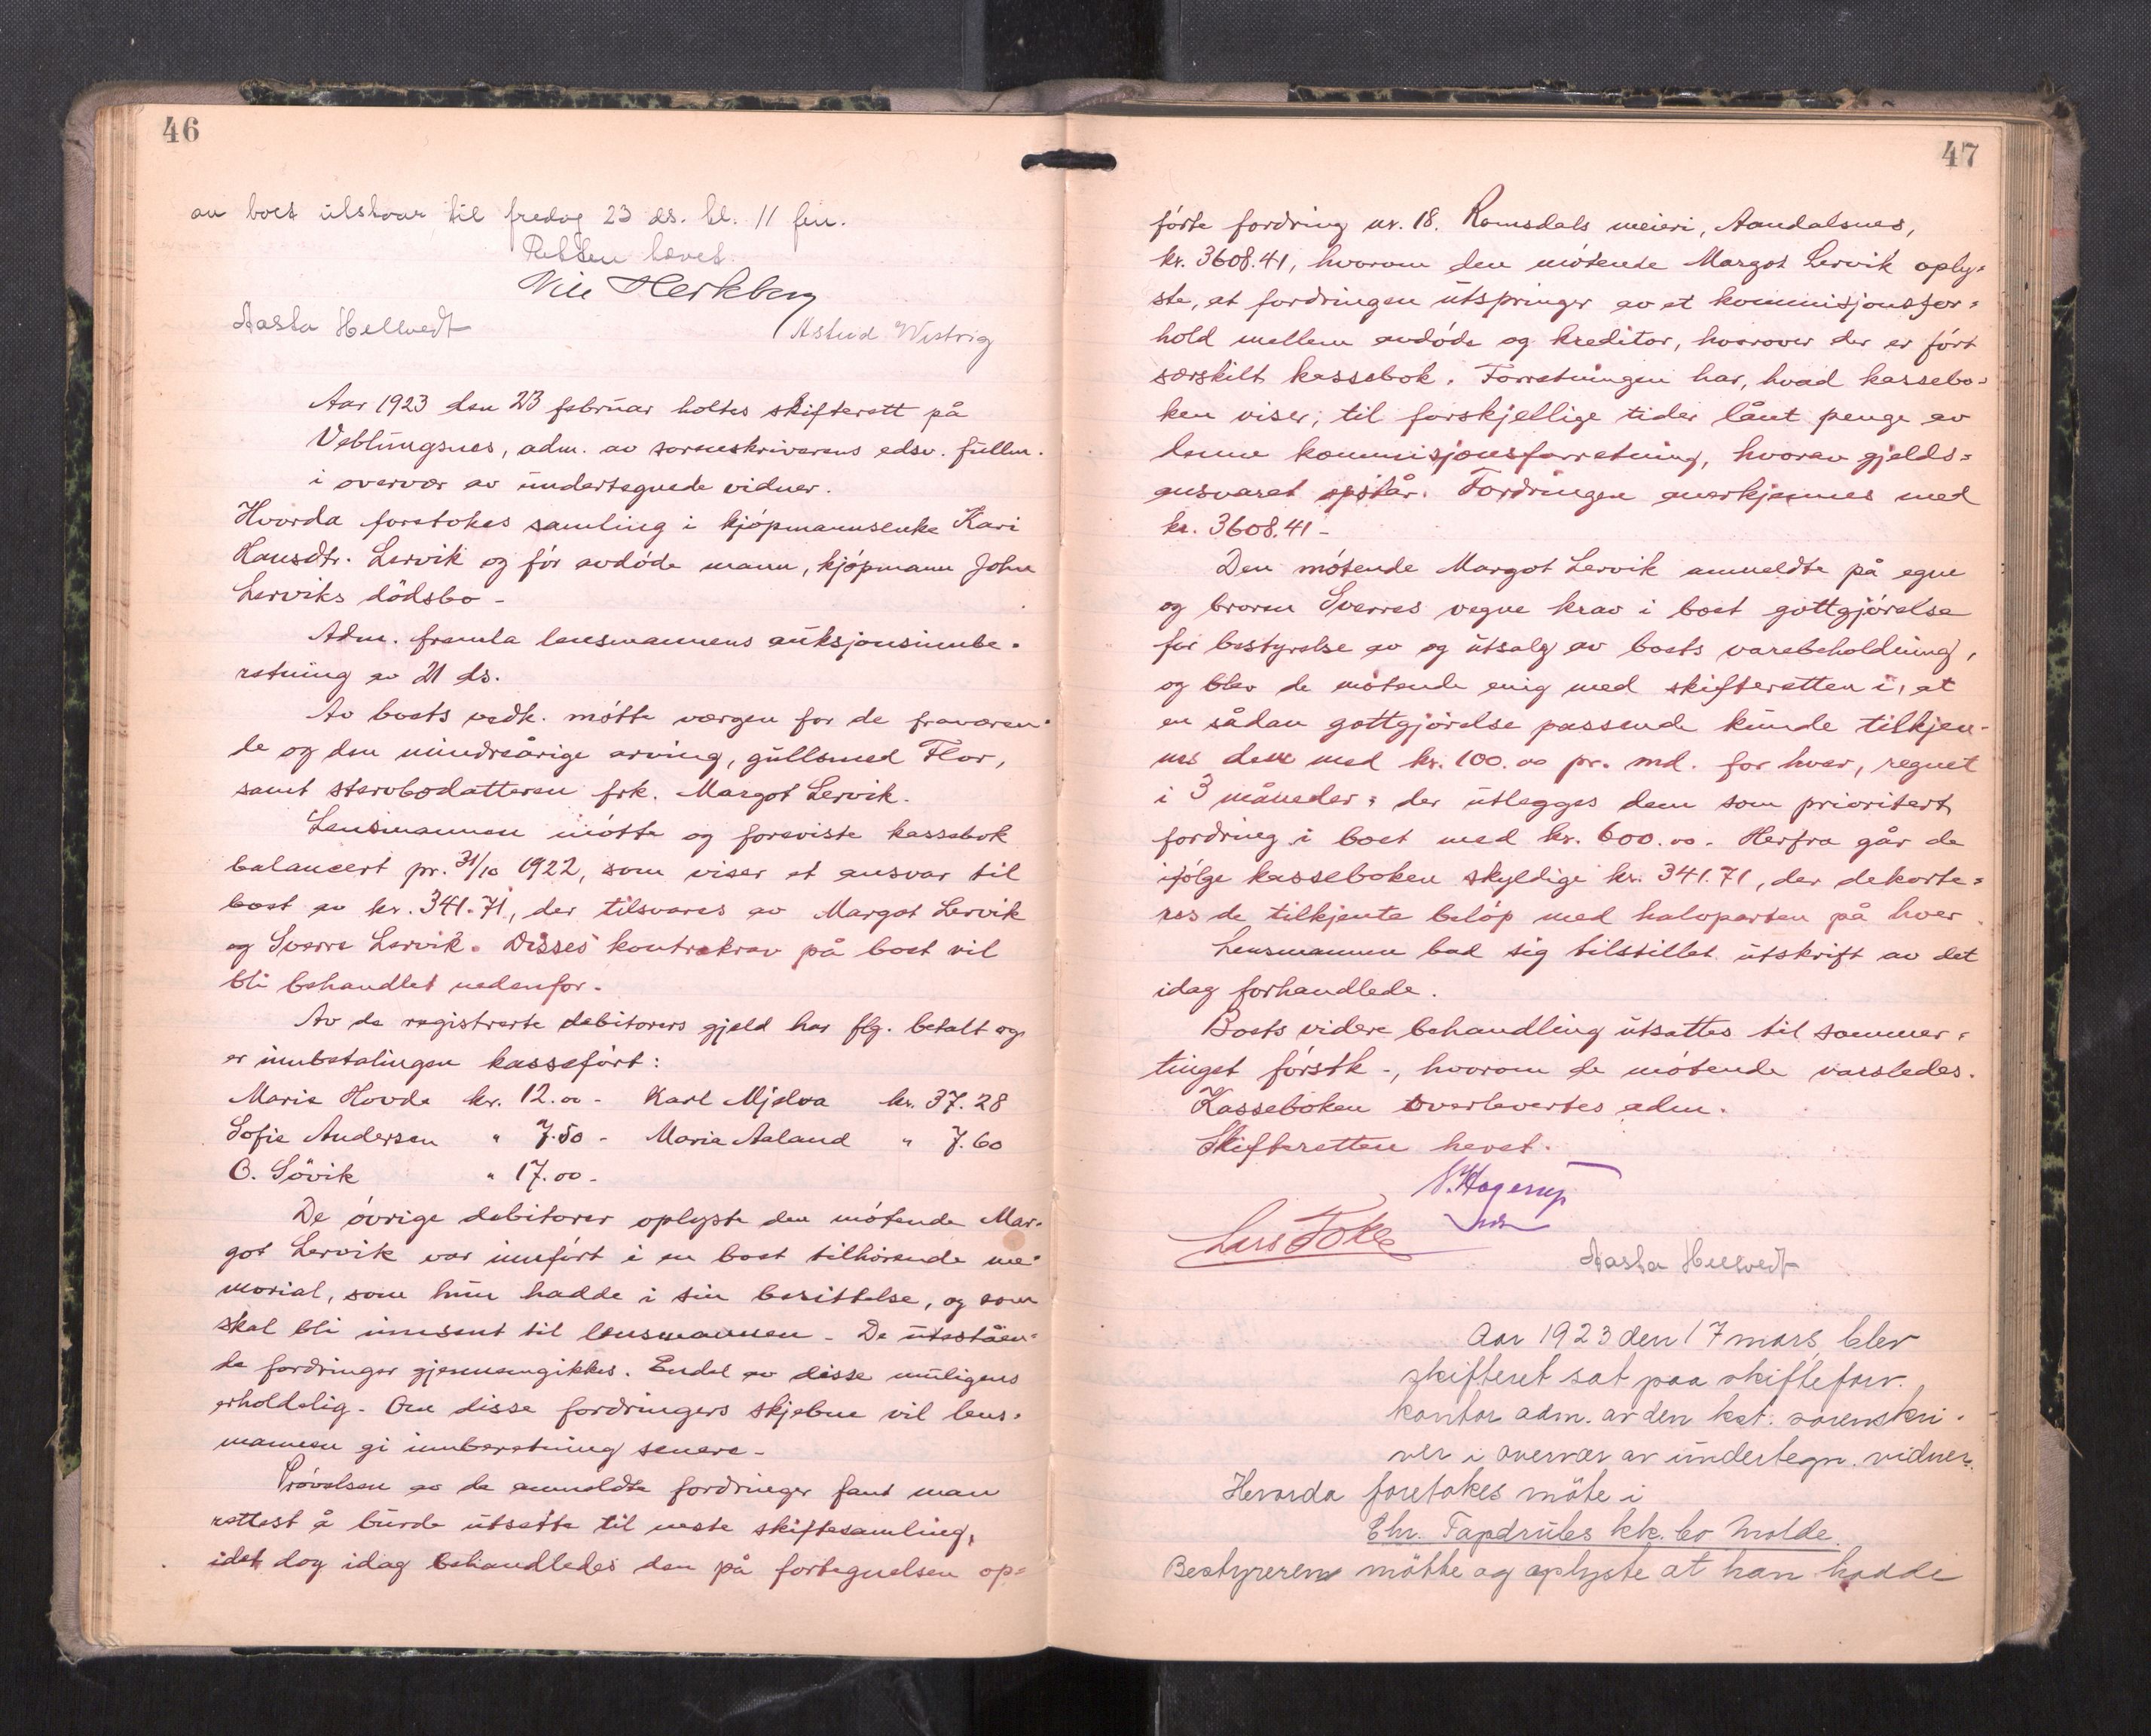 46
av boet utstaar til fredag 23 ds. kl. 11 fm.
Retten hævet.
Aasta Hellvedt
Astrid Westvig
Aar 1923 den 23 februar holtes skifterett på
Veblungsnes, adm. av sorenskriverens edsv. fullm.
i overvær av undertegnede vidner.
Hvorda foretokes samling i kjøpmannsenke Kari
Hansdtr. Lervik og før avdøde mann, kjøpmann John
Lerviks dödsbo -
Adm. fremla lensmannens auksjonsinnbe-
retning av 21 ds.
Av boets vedk. møtte vergen for de fraværen-
de og den mindreårige arving, gullsmed Flor,
samt stervbodatteren frk. Margot Lervik.
Lensmannen møtte og foreviste kassebok
balancert pr. 31/10 1922, som viser et ansvar til
boet av kr. 341.71, der tilsvares av Margot Lervik
og Sverre Lervik. Disses kontrakrav på boet vil
bli behandlet nedenfor.
Av de registrerte debitorers gjeld har flg. betalt og
er innbetalingen kasseført:
Marie Hovde kr. 12.00 - Karl Mjelva kr. 37.28
Sofie Andersen " 7.50 - Maria Aaland " 7.60
O. Sövik " 17.00 -
De øvrige debitorer oplyste den møtende Mar-
got Lervik var innført i en boet tilhørende me-
morial, som hun hadde i sin besittelse, og som
skal bli innsent til lensmannen - De utestâen-
de fordringer gjennemgikkes. Endel av disse muligens
erholdelig - Om disse fordringers skjebne vil lens-
mannen gi innberetning senere -
Prøvelsen av de anmeldte fordringer fant man
rettest å burde utsette til neste skiftesamling,
idet dog idag behandledes den på fortegnelsen op-
47
førte fordring nr. 18. Romsdals meieri, Aandalsnes,
kr. 3608.41, hvorom den møtende Margot Lervik oply-
ste, at fordringen utspringer av et kommisjonsfor-
hold mellem avdøde og kreditor, hvorover der er ført
særskilt kassebok. Forretningen har, hvad kassebo-
ken viser, til forskjellige tider lånt penge av
denne kommisjonsforretning, hvorav gjelds-
ansvaret opstår. Fordringen anerkjennes med
kr. 3608.41 -
Den møtende Margot Lervik anmeldte på egne
og broren Sverres vegne krav i boet gottgjørelse
for bestyrelse av og utsalg av boets varebeholdning,
og blev de møtende enig med skifteretten i, at
en sådan gottgjørelse passende kunde tilkjen-
nes dem med kr. 100.00 pr. md. for hver, regnet
i 3 måneder, der utlegges dem som prioritert
fordring i boet med kr. 600.00. Herfra går de
ifølge kasseboken skyldige kr. 341.71, der dekorte-
res de tilkjente beløp med halvparten på hver.
Lensmannen bad sig tilstillet utskrift av det
idag forhandlede.
Boets videre behandling utsattes til sommer-
tinget førstk -, hvorom de møtende varsledes.
Kasseboken overlevertes adm.
Skifteretten hevet.
N. Hagerup
Lars Tokle
Aasta Hellvedt
Aar 1923 den 17 mars, blev
skifteret sat paa skifteforv.
kontor adm. av den kst. sorenskri-
ver i overvær av undertegn. vidner.
Hvorda foretokes møte i
Chr. Tapdrubs kk. bo Molde.
Bestyreren møtte og oplyste at han hadde